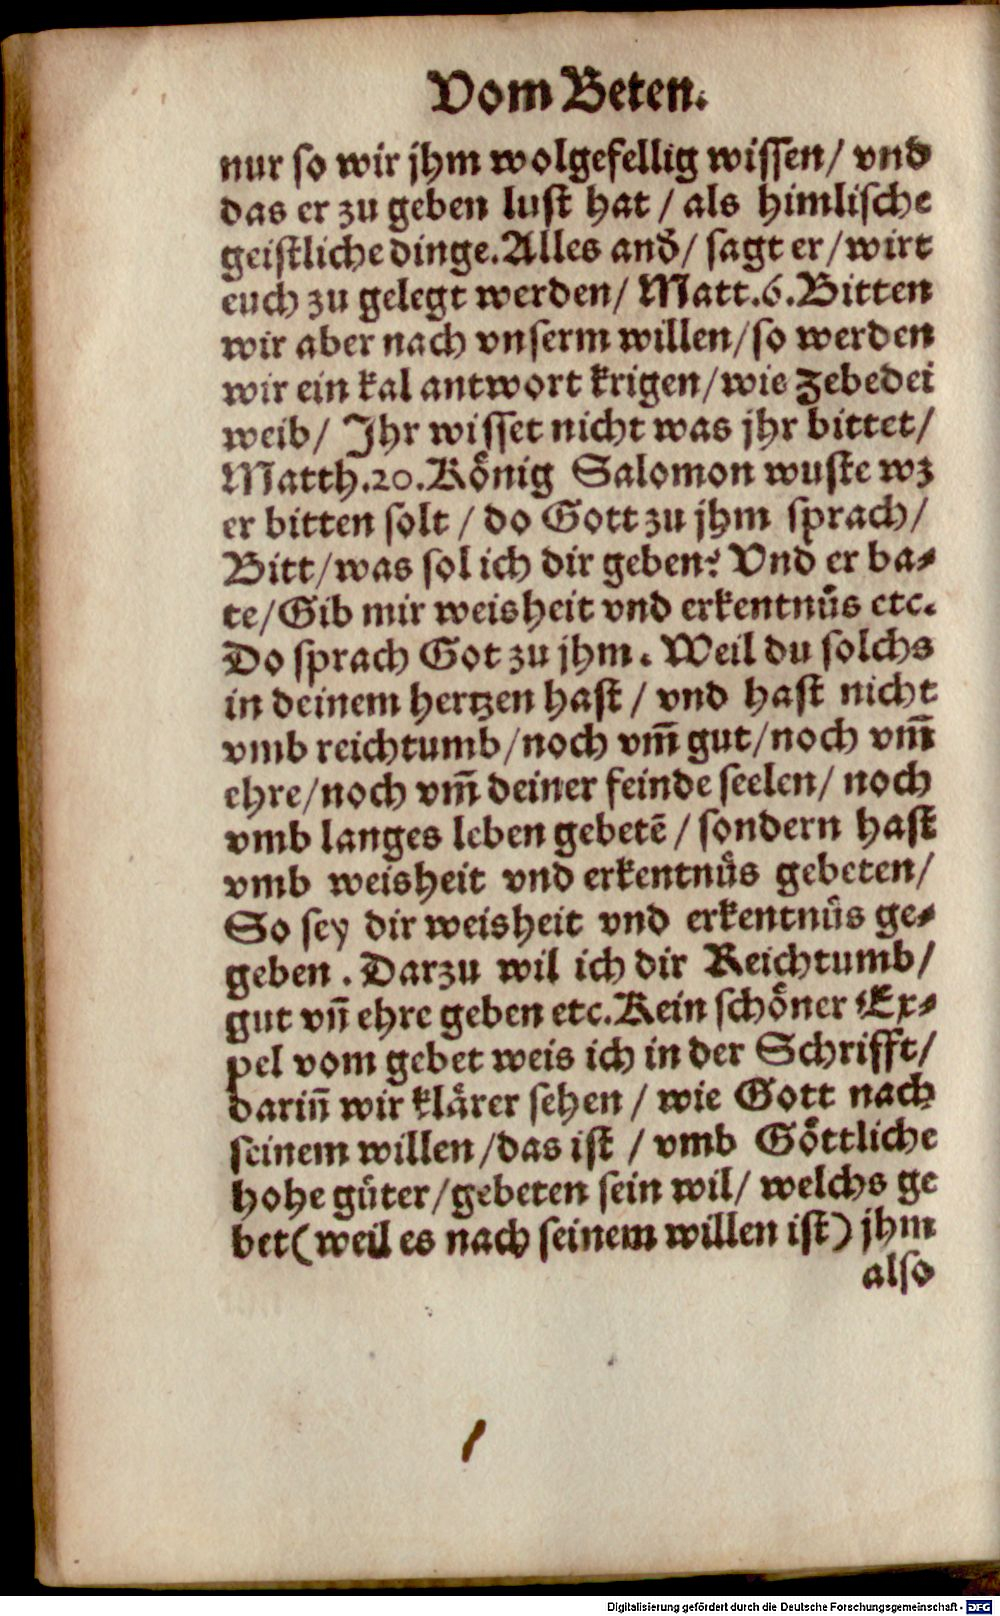 Vom Beten.
nur so wir jhm wolgefellig wissen/ vnd
das er zu geben lust hat / als himlische
geistliche dinge. Alles and̄/ sagt er/ wirt
euch zu gelegt werden/ Matt.6. Bitten
wir aber nach vnserm willen/ so werden
wir ein kal antwort krigen/ wie Zebedei
weib/ Jhr wisset nicht was jhr bittet/
Matth.20. König Salomon wuste wz
er bitten solt / do Gott zu jhm sprach/
Bitt/ was sol ich dir geben? Vnd er ba-
te/ Gib mir weisheit vnd erkentnüs etc.
Do sprach Got zu jhm. Weil du solchs
in deinem hertzen hast / vnd hast nicht
vmb reichtumb/ noch vm̄ gut/ noch vm̄
ehre/ noch vm̄ deiner feinde seelen/ noch
vmb langes leben gebetē / sondern hast
vmb weisheit vnd erkentnüs gebeten/
So sey dir weisheit vnd erkentnüs ge-
geben. Darzu wil ich dir Reichtumb/
gut vn̄ ehre geben etc. Kein schöner Ex-
pel vom gebet weis ich in der Schrifft/
darin̄ wir klärer sehen / wie Gott nach
seinem willen / das ist / vmb Göttliche
hohe güter/ gebeten sein wil/ welchs ge
bet (weil es nach seinem willen ist) jhm
also
Digitalisierung gefördert durch die Deutsche Forschungsgemeinschaft - DFG